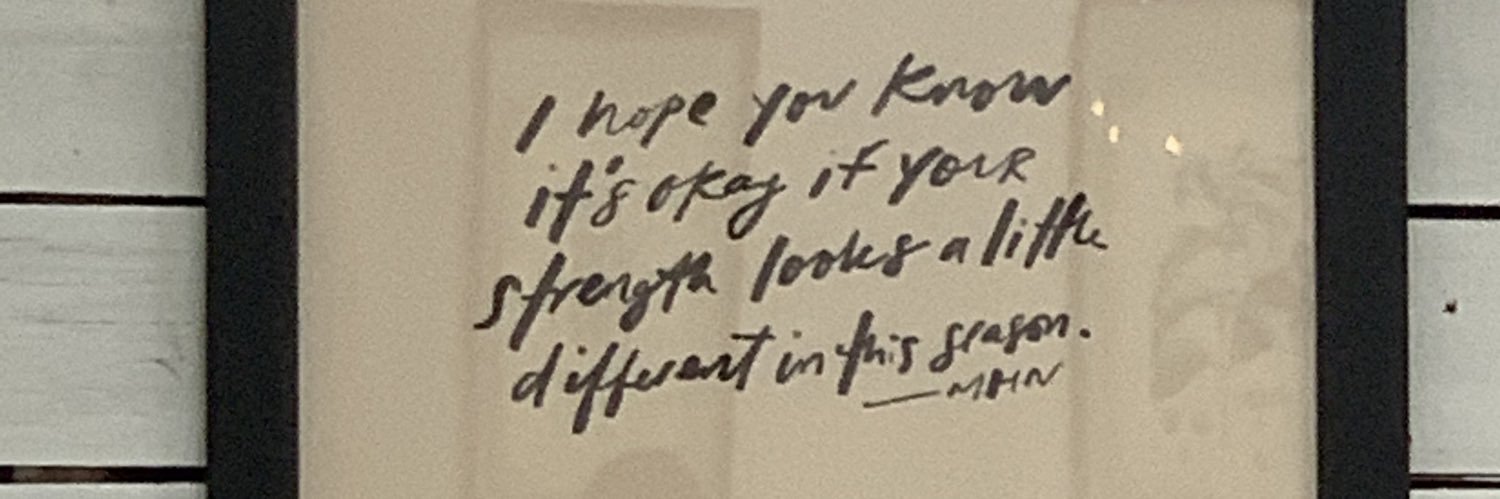 I hope you know
it's okay if your
strength looks a little
different in this season.
— MHN